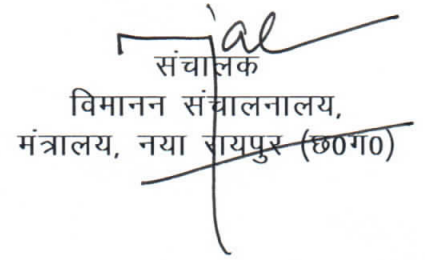 संचालक
विमानन संचालनालय,
मंत्रालय, नया रायपुर (छ0ग0)